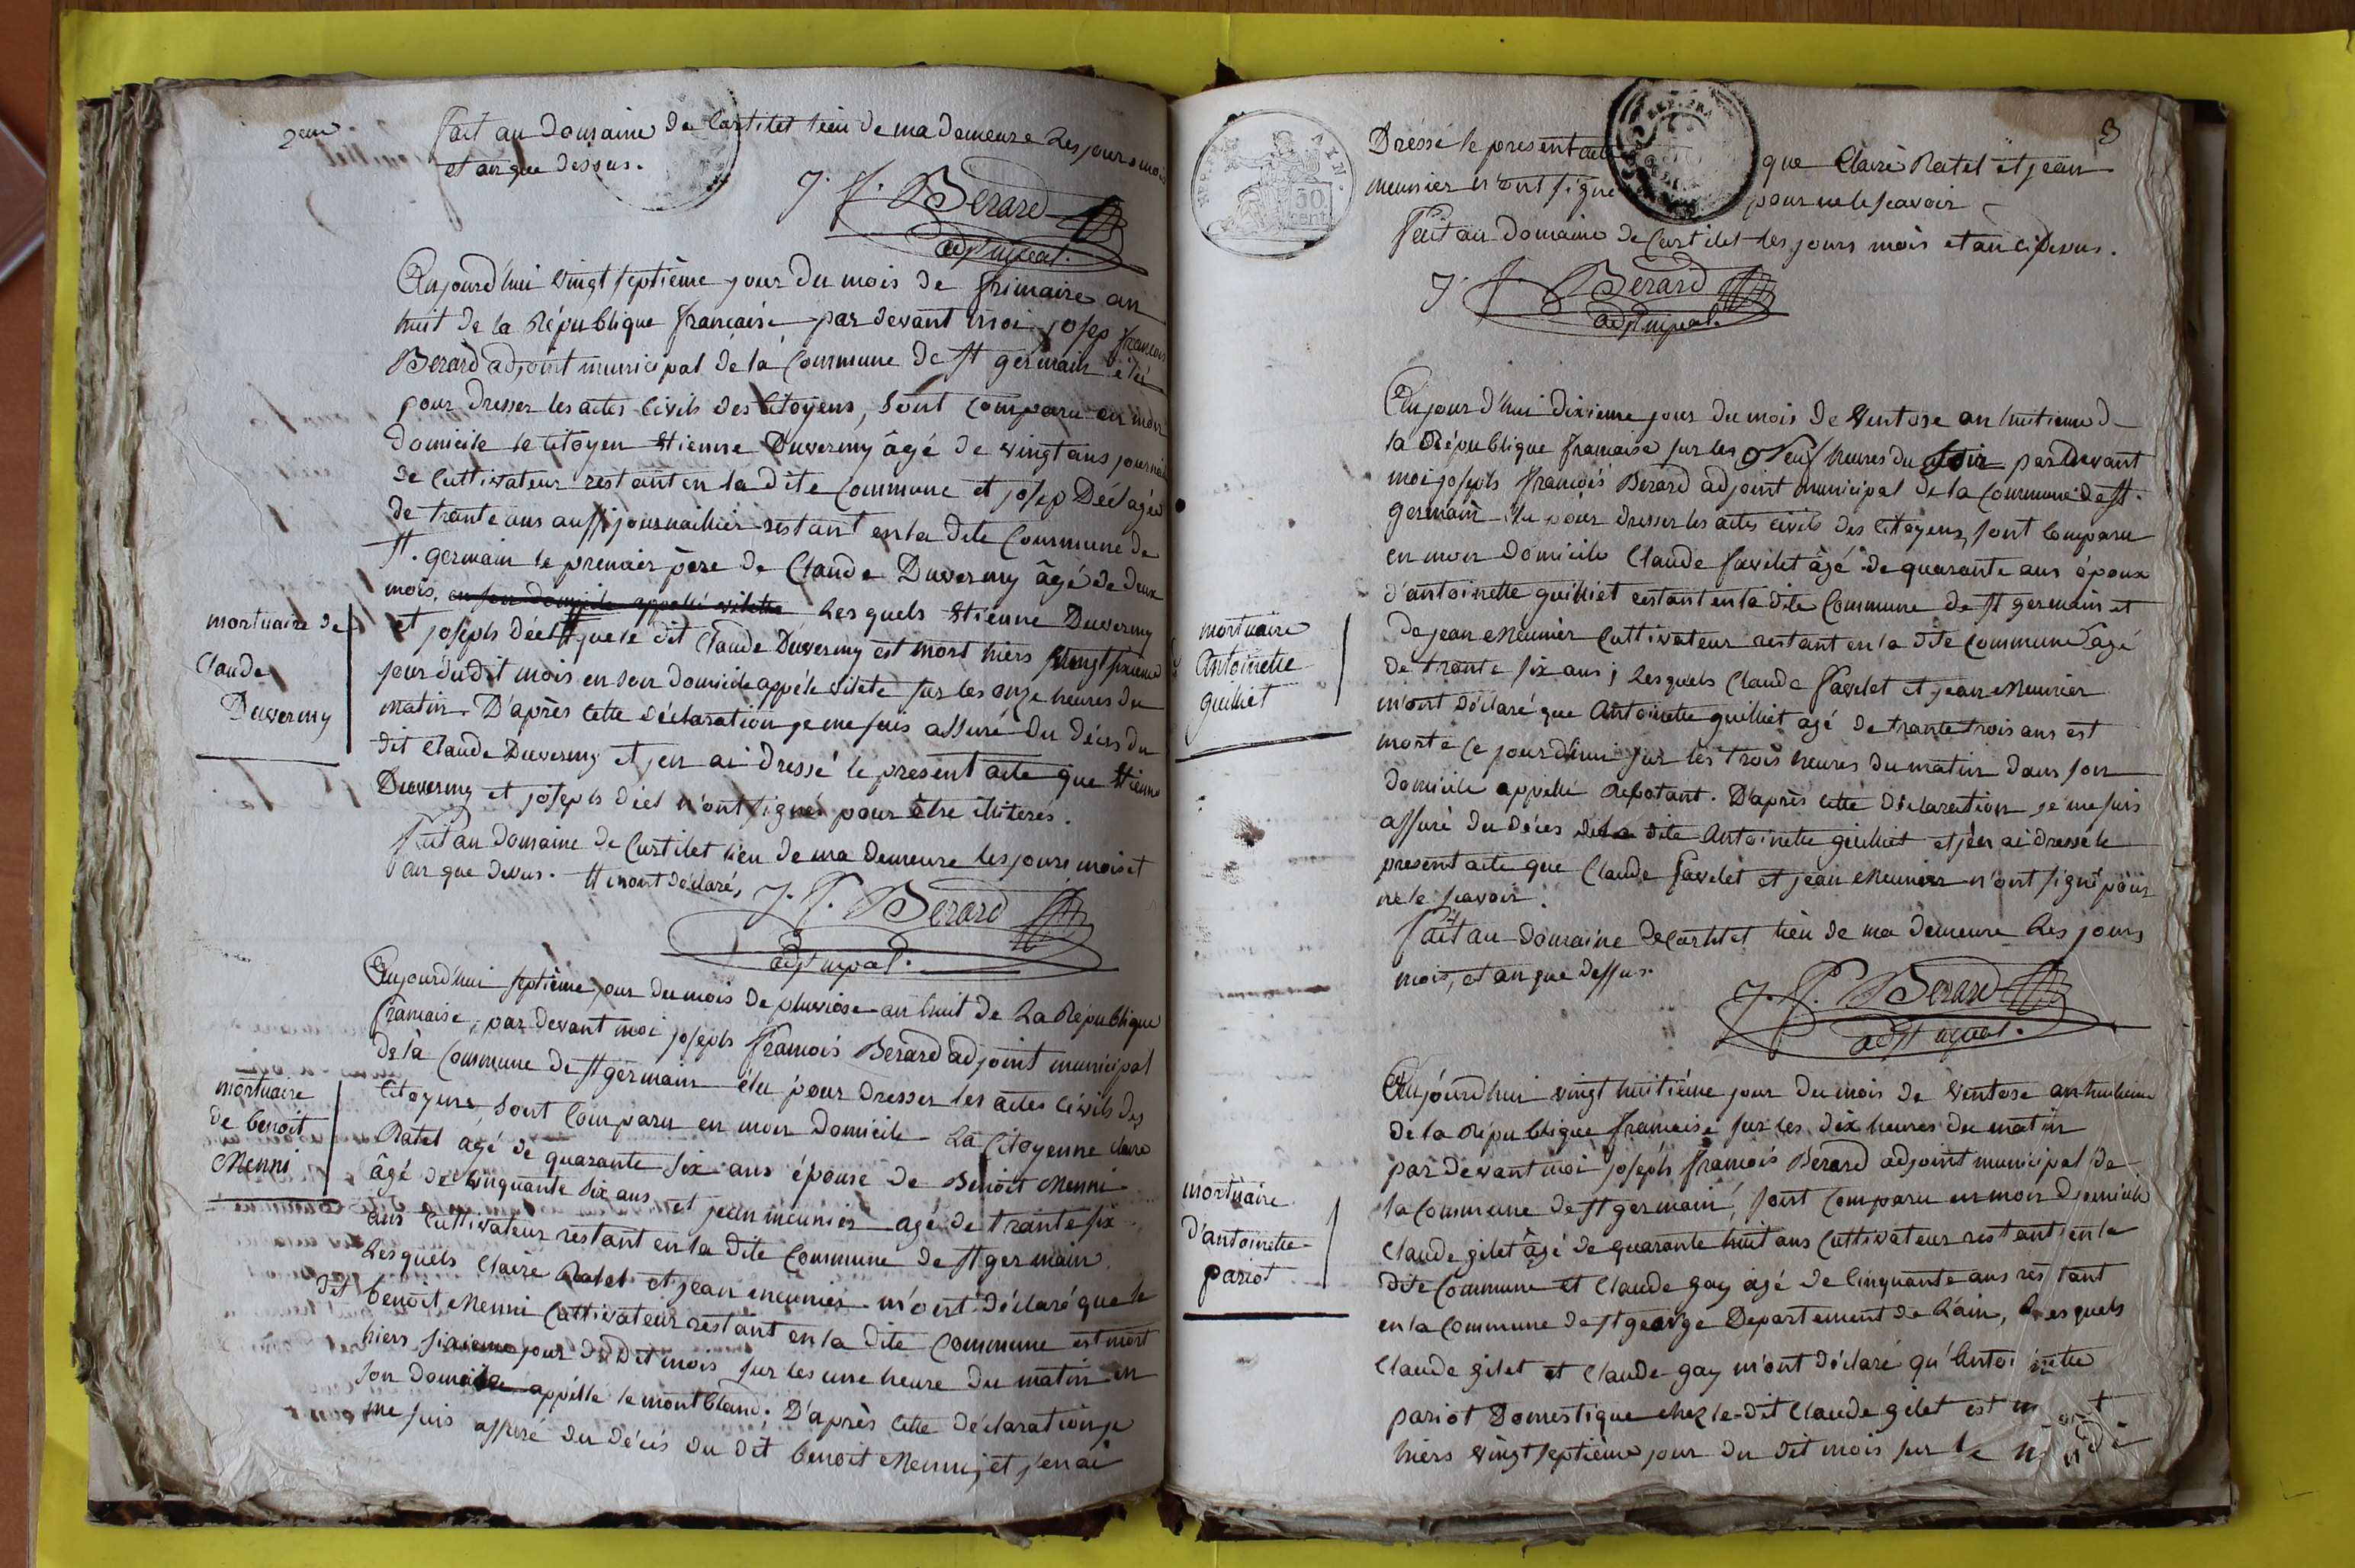 2eme
fait au Domaine de Curtilet lieu de ma demeure les jours mois
et an que dessus.
J. f. Berard
adjt mpal.
Aujourd'hui vingt septième jour du mois de frimaire an
huit de la République francaise par devant moi josep francois
Berard adjoint municipal de la Commune de st germain élu
pour dresser les actes civils des Citoyens, sont comparu en mon
domicile le citoyen Etienne Duvermy âgé de vingt ans journal
de Cultivateur restant en la dite Commune et josep Déel agé
de trante ans aussi journaillier restant en la dite Commune de
st. germain le premier père de Claude Duvermy âgé de deux
mois, en son domicile appellé vilette lesquels Etienne Duvermy
et josephs Déel que le dit Claude Duvermy est mort hiers vingt sixieme
jour du dit mois en son domicile appéle vilete sur les onze heures du
matin. D'après cette déclaration je me suis assuré du décès du
dit Claude Duvermy et j'en ai dressé le present acte que Etienne
Duvermy et josephs déel n'ont signé pour être illiteres.
fait au domaine de Curtilet lieu de ma demeure les jours mois et
an que dessus. # mont déclaré,
mortuaire de
Claude
Duvermy
J. f. Berard
adjt mpal.
Aujourd'hui septième jour du mois de pluviose an huit de La République
francaise, par devant moi josephs francois Berard adjoint municipal
de la Commune de st germain élu pour dresser les actes civils des
Citoyens, sont comparu en mon domicile La Citoyenne claire
Ratel âgé de quarante six ans épouse de Benoit Menni
âgé de cinquante six ans, et jean meunier agé de trante six
ans Cultivateur restant en la dite Commune de st germain.
Lesquels Claire Ratel et jean meunier m'ont déclaré que le
dit benoit Menni Cultivateur restant en la dite Commune est mort
hiers sixieme jour du dit mois sur les une heure du matin en
son domicile appéllé le mont blanc. D'après cette déclaration je
me suis assuré du décès du dit benoit Menni, et j'en ai
mortuaire
de benoit
Menni
3
Dréssé le present acte que Claire Ratel et jean
meunier n'ont signé pour ne le scavoir
fait au Domaine de Curtilet les jours mois et an ci dessus.
J. f. Berard
adjt mpal.
Aujourd'hui dixieme jour du mois de Ventose an huitieme de
la République francaise sur les Neuf heures du soir par devant
moi josephs francois Berard adjoint municipal de la Commune de st.
germain élu pour dresser les actes civils des Citoyens, sont comparu
en mon domicile Claude favelet âgé de quarante ans époux
d'antoinette guilliet restant en la dite Commune de st germain et
de jean Meunier Cultivateur restant en la dite commune agé
de trante six ans ; lesquels Claude favelet et jean Meunier
m'ont déclaré que Antoinette guilliet agé de trante trois ans est
morte ce jourd'hui sur les trois heures du matin dans son
domicile appellé Repotant. D'après cette déclaration je me suis
assuré du décès de la dite Antoinette guilliet et j'en ai dressé le
present acte que Claude favelet et jean Meunier n'ont signé pour
ne le scavoir.
fait au Domaine de Curtilet lieu de ma demeure Les jours
mois, et an que dessus.
mortuaire
Antoinette
guilliet
J. f. Berard
adjt mpal.
Aujourdhui vingt huitiéme jour du mois de Ventose an huitieme
de la République francaise sur les dix heures du matin
par devant moi josephs francois Berard adjoint municipal de
la Commune de st germain, sont comparu en mon domicile
Claude gilet âgé de quarante huit ans Cultivateur restant en la
dite Commune et Claude gay agé de Cinquante ans restant
en la Commune de st george Departement de Lain, Lesquels
Claude gilet et Claude gay m'ont déclaré qu'Antoinette
pariot Domestique chez le dit Claude gilet est mort
hiers vingt septième jour du dit mois sur le midi
mortuaire
d'antoinette
pariot